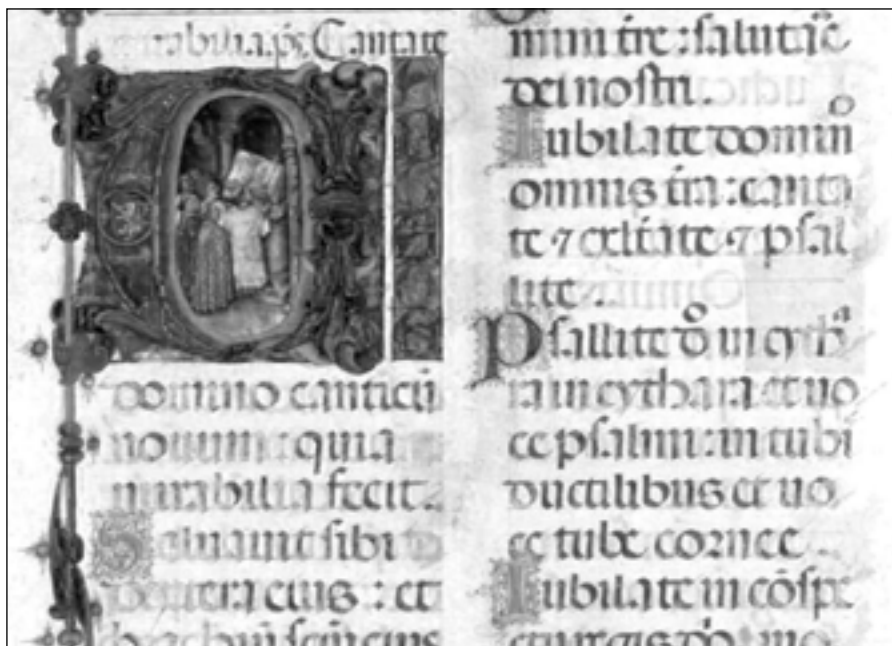 rabilia. ps. Cantate
domino canticū
novum: quia
mirabilia fecit.
Salvavit sibi
dextera eius: et
brachiū scm̄ eius
mini tr̄e: salutar̄e
dei nostri.
Iubilate domin̊
omnis tr̄a: canta
te ⁊ exl̄tate ⁊ psal
lite.
Psallite dō in cythᵃ
ra in cythara et vo
ce psalmi: in tubi
ductilibus et vo
ce tube cornee.
Iubilate in cōspe